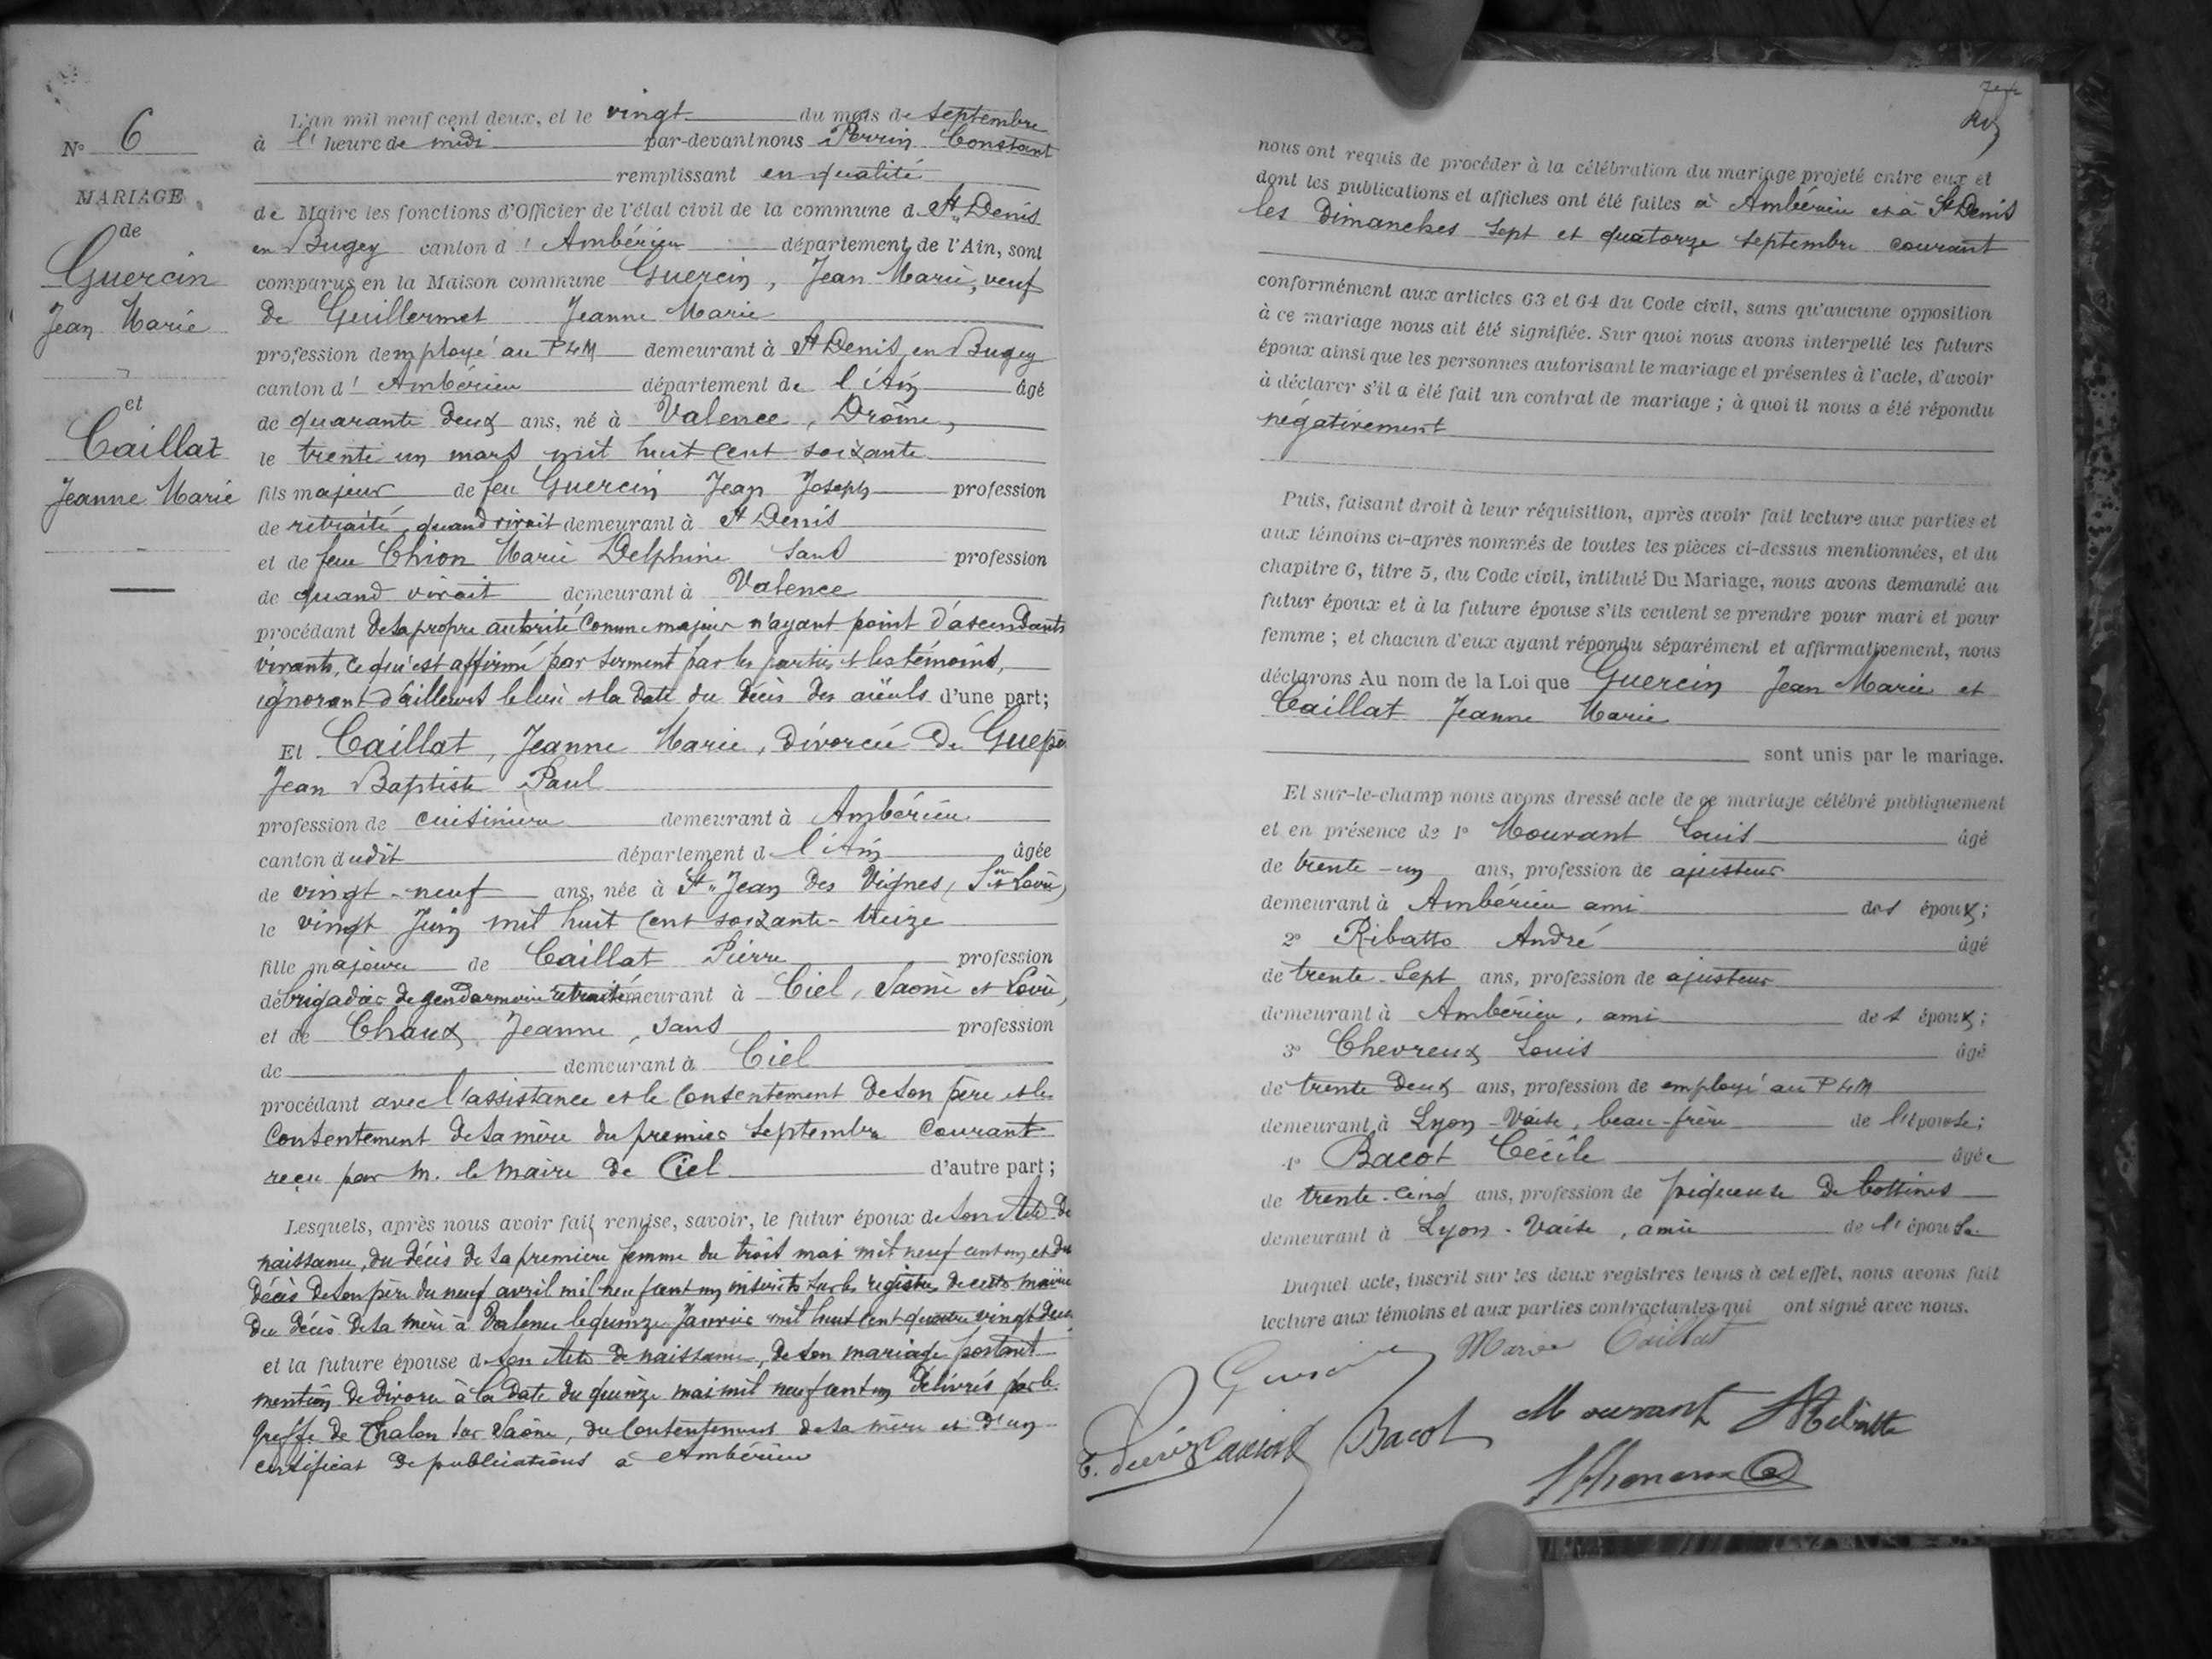 N° 6
MARIAGE
de
Guercin
Jean Marie
et
Caillat
Jeanne Marie
L'an mil neuf cent deux, et le vingt du mois de septembre
à l' heure de midi par-devant nous Perrin Constant
remplissant en qualité
de Maire les fonctions d'Officier de l'état civil de la commune d St Denis
en Bugey canton d' Ambérieu département de l'Ain, sont
comparus en la Maison commune Guercin, Jean Marie, veuf
de Guillermet Jeanne Marie
profession d'employé au PLM demeurant à St Denis en Bugey
canton d' Ambérieu département de l'Ain âgé
de quarante deux ans, né à Valence, Drôme,
le trente un mars mil huit cent soixante
fils majeur de feu Guercin Jean Joseph profession
de retraité, quand vivait demeurant à St Denis
et de feue Chion Marie Delphine sans profession
de quand vivait demeurant à Valence
procédant de sa propre autorité comme majeur n'ayant point d'ascendants
vivants, ce qui est affirmé par serment par les parties et les témoins,
ignorant d'ailleurs le lieu et la date du décès des aïeuls d'une part;
Et Caillat, Jeanne Marie, divorcée de
Jean Baptiste Paul
profession de cuisinière demeurant à Ambérieu
canton dudit département d l'Ain âgée
de vingt-neuf ans, née à St Jean des Vignes, (Sne et Loire)
le vingt Juin mil huit cent soixante-treize
fille majeure de Caillat Pierre profession
de brigadier de gendarmerie retraité demeurant à Ciel, Saône et Loire,
et de Chaux Jeanne, sans profession
de demeurant à Ciel
procédant avec l'assistance et le consentement de son père et le
consentement de sa mère du premier septembre courant
reçu par M. le Maire de Ciel d'autre part;
Lesquels, après nous avoir fait remise, savoir, le futur époux de son acte de
naissance, du décès de sa première femme du trois mai mil neuf cent un et du
décès de son père du neuf avril mil neuf cent un inscrits sur les registres de cette mairie
du décès de sa mère à Valence le quinze Janvier mil huit cent quatre vingt deux
et la future épouse d son acte de naissance, de son mariage portant
mention de divorce à la date du quinze mai mil neuf cent un délivrés par le
greffe de Chalon sur Saône, du consentement de sa mère et d'un
certificat de publications à Ambérieu
nous ont requis de procéder à la célébration du mariage projeté entre eux et
dont les publications et affiches ont été faites à Ambérieu et à St Denis
les Dimanches sept et quatorze septembre courant
conformément aux articles 63 et 64 du Code civil, sans qu'aucune opposition
à ce mariage nous ait été signifiée. Sur quoi nous avons interpellé les futurs
époux ainsi que les personnes autorisant le mariage et présentes à l'acte, d'avoir
à déclarer s'il a été fait un contrat de mariage; à quoi il nous a été répondu
négativement
Puis, faisant droit à leur réquisition, après avoir fait lecture aux parties et
aux témoins ci-après nommés de toutes les pièces ci-dessus mentionnées, et du
chapitre 6, titre 5, du Code civil, intitulé Du Mariage, nous avons demandé au
futur époux et à la future épouse s'ils veulent se prendre pour mari et pour
femme; et chacun d'eux ayant répondu séparément et affirmativement, nous
déclarons Au nom de la Loi que Guercin Jean Marie et
Caillat Jeanne Marie
sont unis par le mariage.
Et sur-le-champ nous avons dressé acte de ce mariage célébré publiquement
et en présence de 1° Mourant Louis âgé
de trente-un ans, profession de ajusteur
demeurant à Ambérieu ami des époux;
2° Ribatto André âgé
de trente-sept ans, profession de ajusteur
demeurant à Ambérieu, ami des époux;
3° Chevreux Louis âgé
de trente deux ans, profession de employé au PLM
demeurant à Lyon-Vaise, beau-frère de l'épouse;
4° Bacot Cécile âgée
de trente-cinq ans, profession de piqueuse de bottines
demeurant à Lyon-Vaise, amie de l'épouse
Duquel acte, inscrit sur les deux registres tenus à cet effet, nous avons fait
lecture aux témoins et aux parties contractantes qui ont signé avec nous.
Guercin Marie Caillat
Bacot Mourant ARibatto